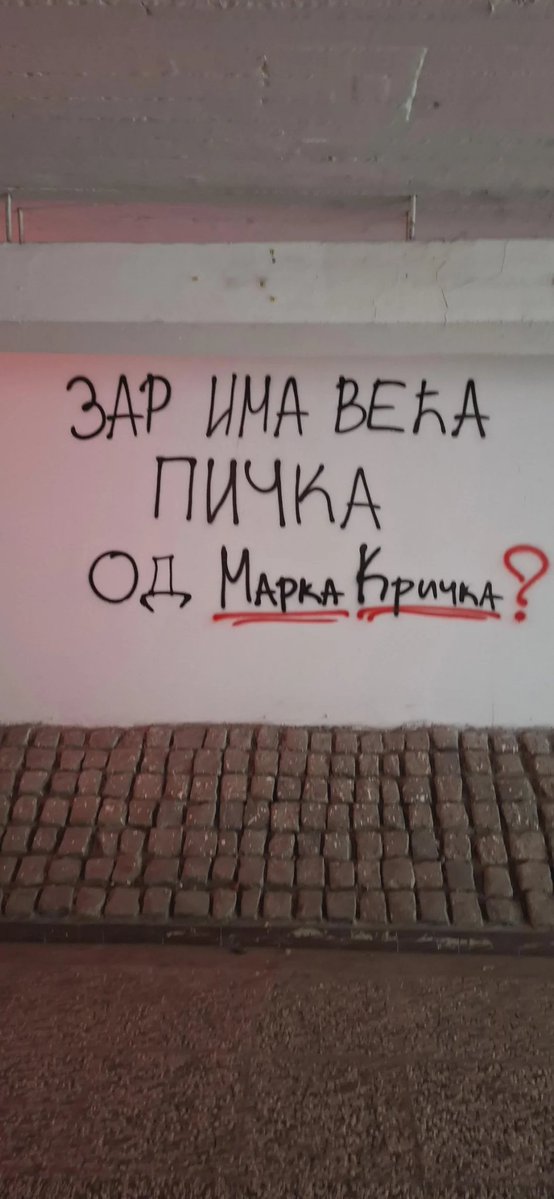 ЗАР ИМА ВЕЋА
ПИЧКА
ОД МАРКА КРИЧКА?